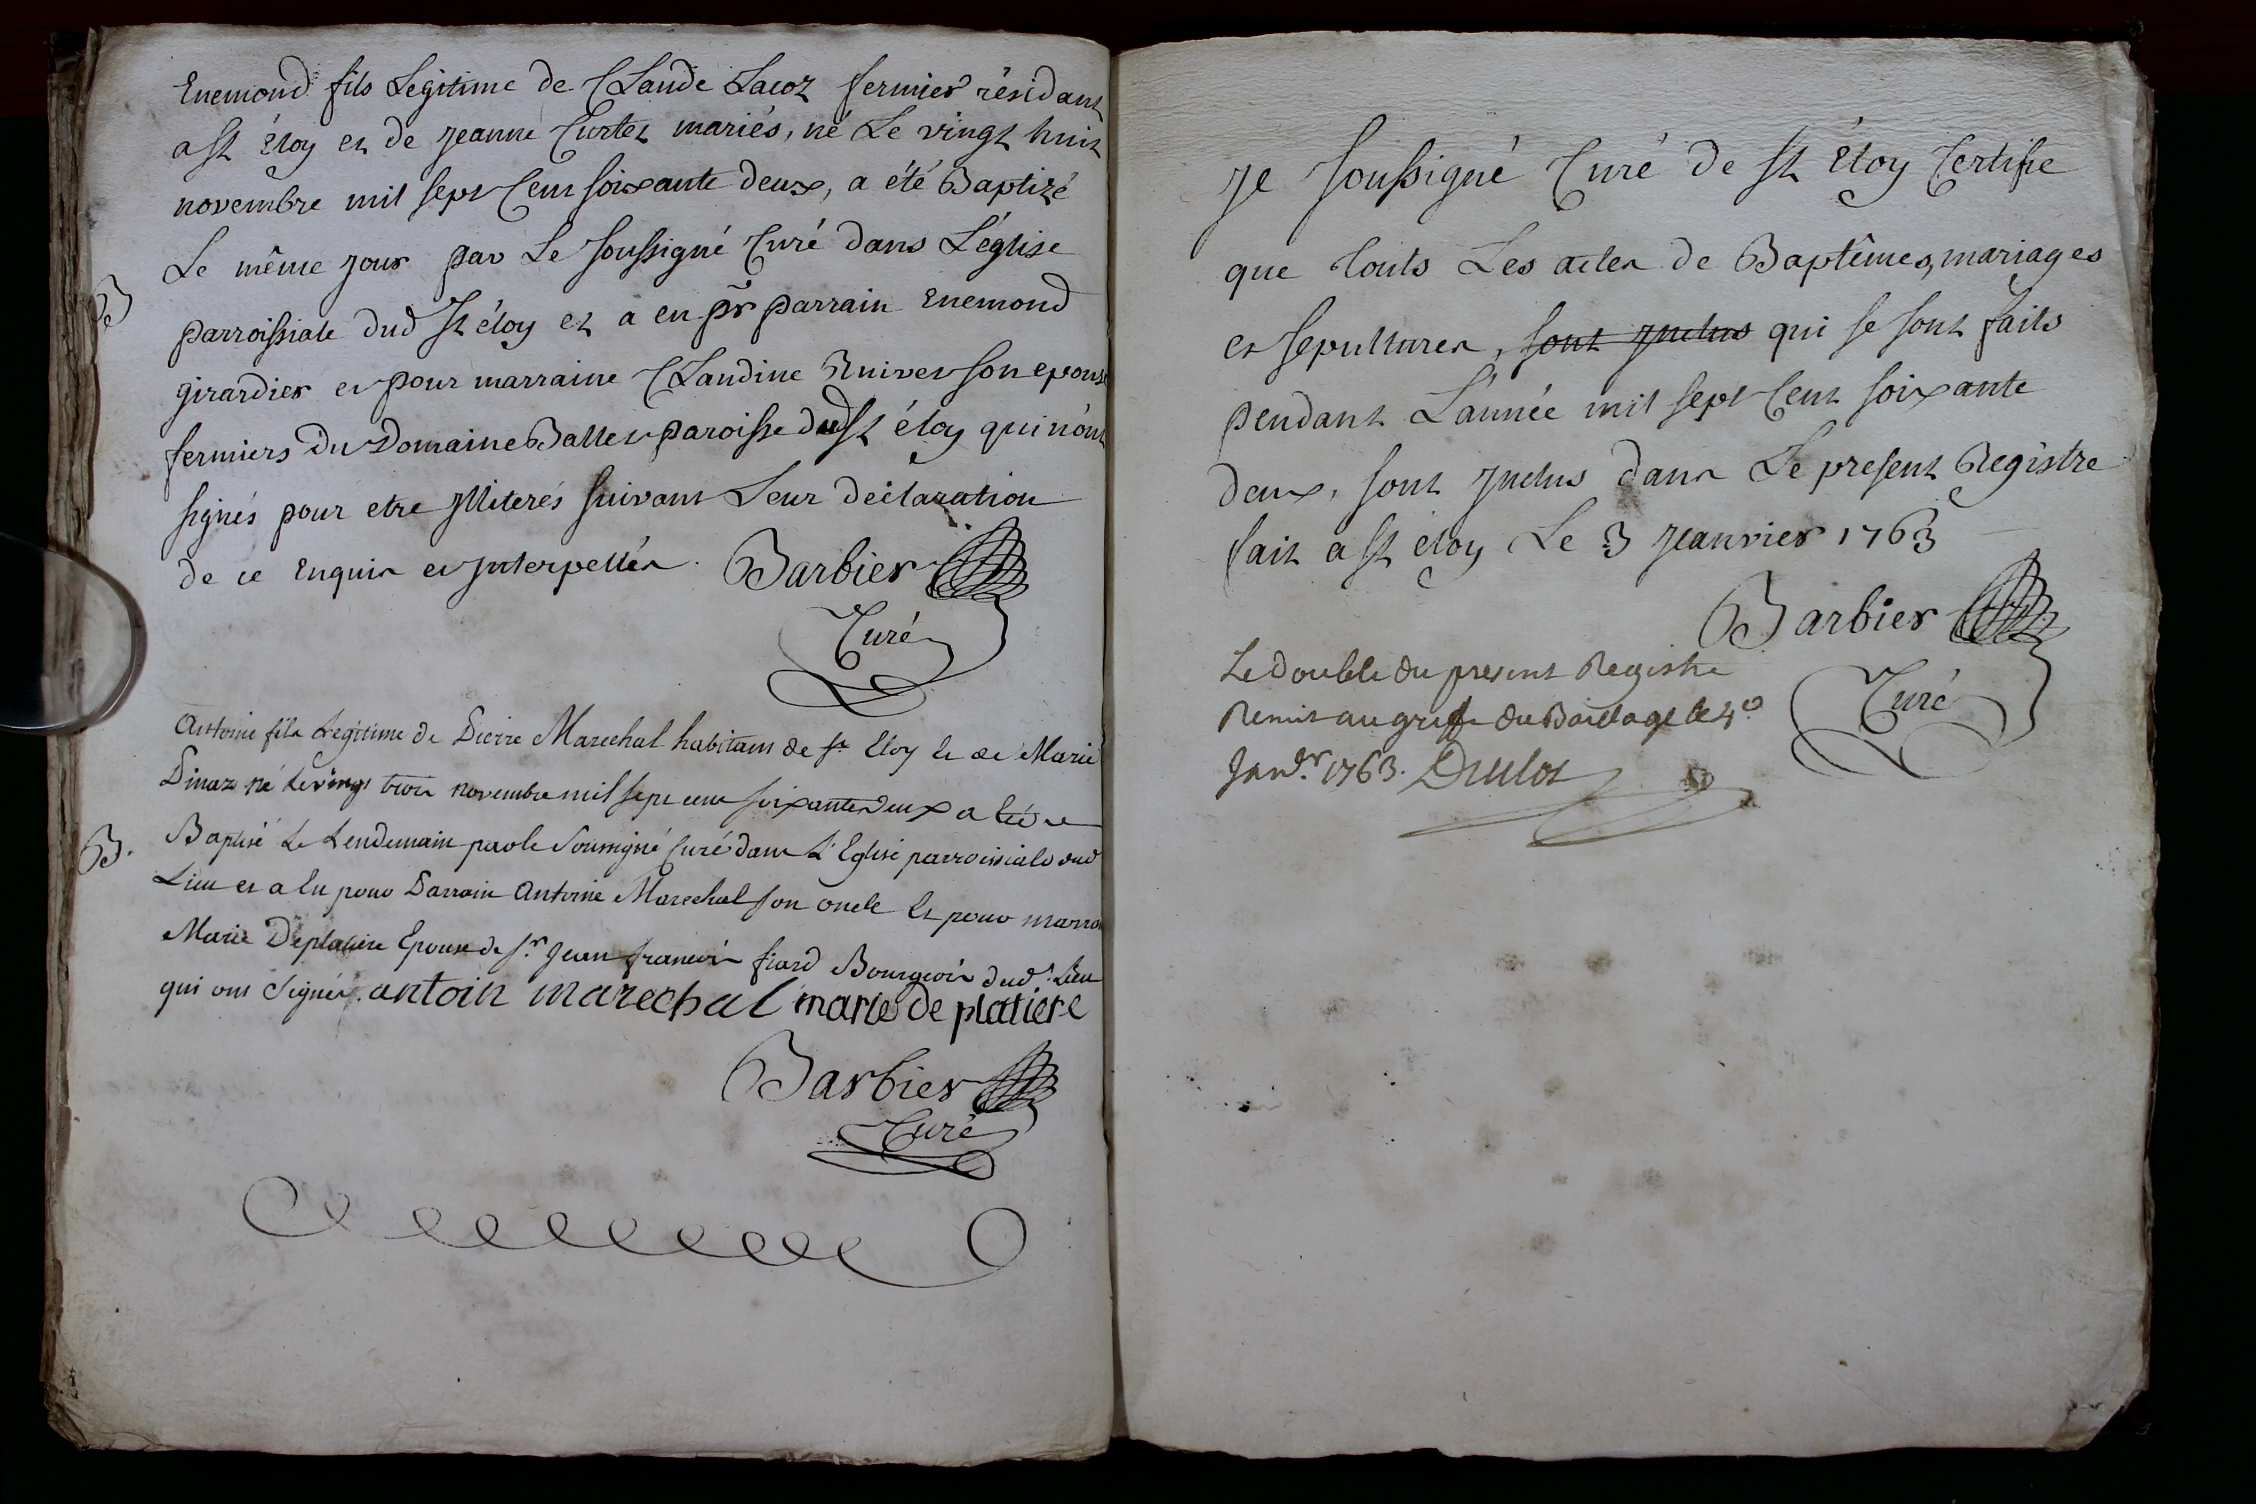 Enemond fils Legitime de Claude Lacoz fermier résidant
a st Eloy et de jeanne Curtet mariés, né Le vingt huit
novembre mil sept Cent soixante deux, a été Baptizé
Le même jour par Le soussigné Curé dans L'église
B
parroissiale dud st éloy et a eu pr parrain Enemond
girardier et pour marraine Claudine son epouse
fermiers du Domaine Ballet paroisse dud st éloy qui n'ont
signés pour etre jlliterés suivant Leur déclaration
de ce Enquis et jnterpellés. Barbier
Curé
Antoine fils Legitime de Pierre Marechal habitant de st Eloy et de Marie
Pinaz né le vingt trois novembre mil sept cent soixante deux a été
B.
Baptisé Le Lendemain par le Soussigné Curé dans L'Eglise parroissiale dud
Lieu et a Eu pour Parrain Antoine Marechal son oncle Et pour marra
Marie Deplatiere Epouse de sr. Jean francois fiard Bourgeois dud. Lieu
qui ont Signés. antoin marechal marie de platiere
Barbier
Curé
je soussigné Curé de st Eloy Certifie
que touts Les actes de Baptêmes, mariages
et sepultures, sont jnclus qui se sont faits
pendant L'année mil sept Cent soixante
deux, sont jnclus dans Le present Registre
fait a st eloy Le 3 jeanvier 1763
Barbier
Curé
Le double du present Registre
Remis au greffe du Bailiage le 4e
Janvr. 1763. Drulot